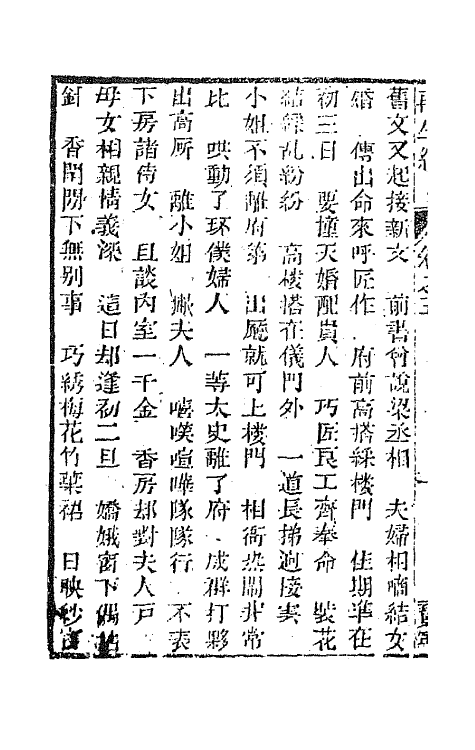 再生緣 卷之五
舊文又起接新文 前書曾說梁丞相 夫婦相啇結女
婚 傳出命來呼匠作 府前高搭綵楼門 佳期準在
初三日 要撞天婚配貴人 巧匠良工齊奉命 裝花
結綵乱紛紛 高楼搭在儀門外 一道長梯迥接雲
小姐不須離府第 出廳就可上楼門 相衙热閙非常
比 哄動了环僕婦人 一等太史離了府 成群打夥
出高厛 離小姐 撇夫人 嘻嘆喧嘩隊隊行 不表
下房諸侍女 且談內室一千金 香房却對夫人戸
母女相親情義深 這日却逢初二旦 嬌娥窗下偶拈
針 香閨閑下無别事 巧綉梅花竹葉裙 日映紗窗